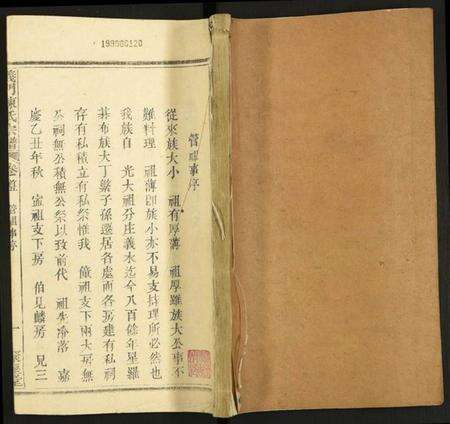 199506120
管祠事序
從來族大小 祖有厚薄 祖厚雖族大公事不
難料理 祖薄即族小亦不易支持理所必然也
我族自 光大祖分庄義水迄今八百餘年星羅
棊布族大丁繁子孫遷居各處而各房建有私祠
存有私積立有私祭惟我 僖祖支下兩大房無
公祠無公積無公祭以致前代 祖先冷落 嘉
慶乙丑年秋 僖祖支下房 伯見麟房 見三
義門陳氏宗譜 卷首 管祠事序 一